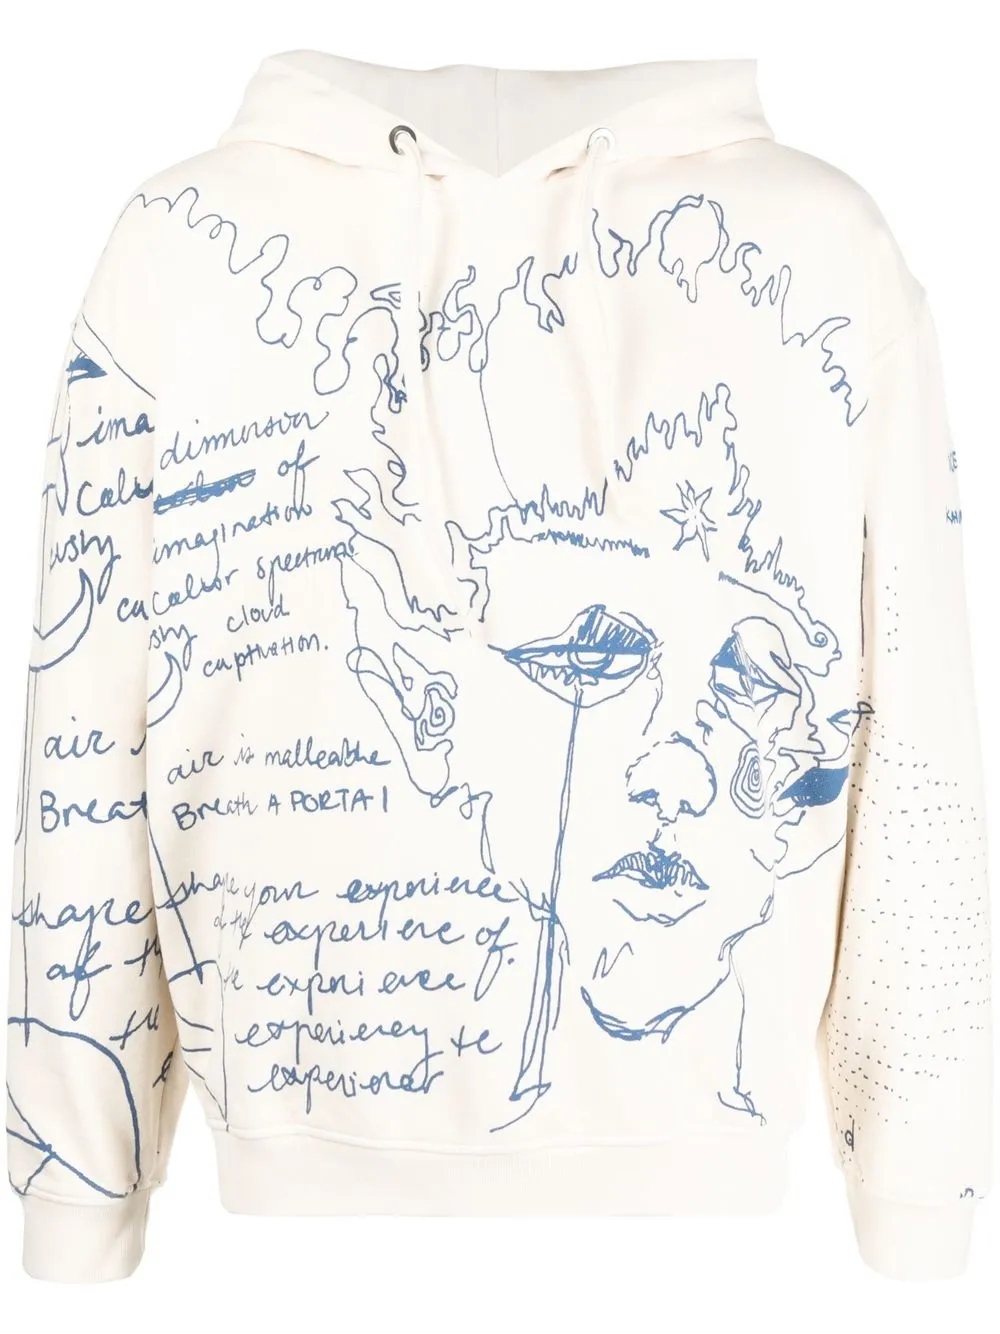 ima
air
Breat
shape
of t
dimmersion
of
imagination
Colour spectrum
cloud
captivation.
air is malleable
Breath A PORTAl
shape your experience
of the experience of.
the experience
experiencey te
experiencer
KE
KHA
d